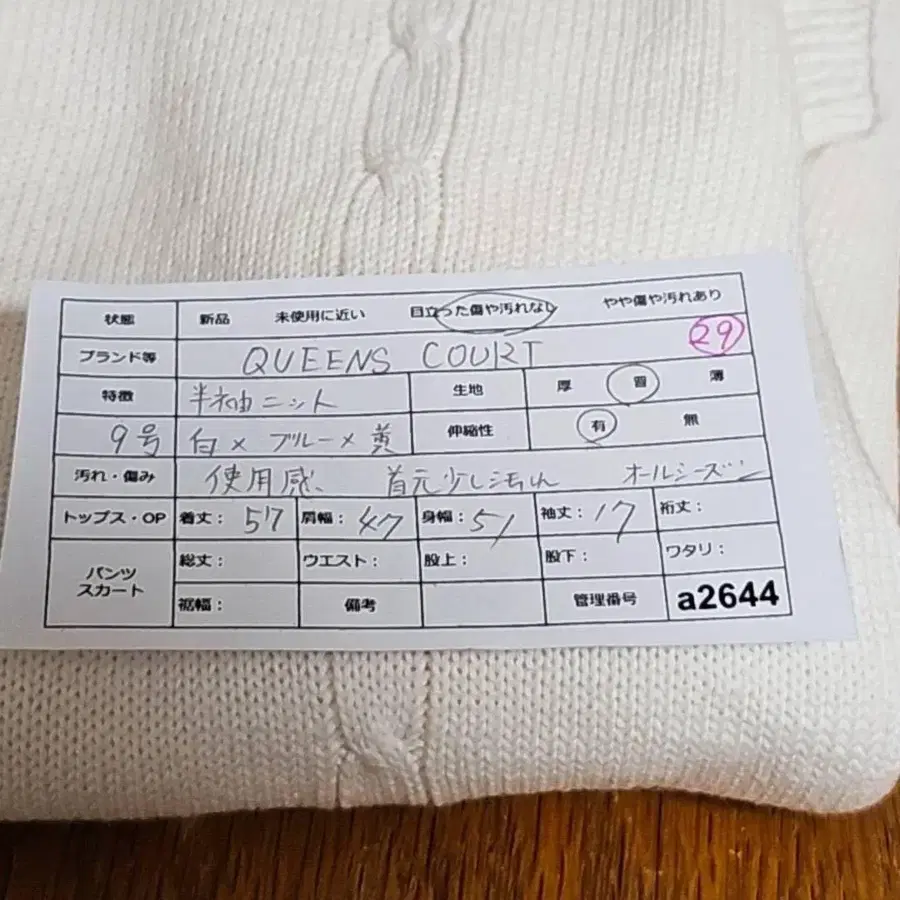 状態 新品 未使用に近い 目立った傷や汚れなし やや傷や汚れあり
ブランド等 QUEENS COURT 29
特徴 半袖ニット 生地 厚 普 薄
9号 白×ブルー×黄 伸縮性 有 無
汚れ・傷み 使用感、 首元少し汚れ オールシーズン
トップス・OP 着丈: 57 肩幅: 47 身幅: 51 袖丈: 17 裄丈:
パンツ スカート 総丈: ウエスト: 股上: 股下: ワタリ:
裾幅: 備考 管理番号 a2644